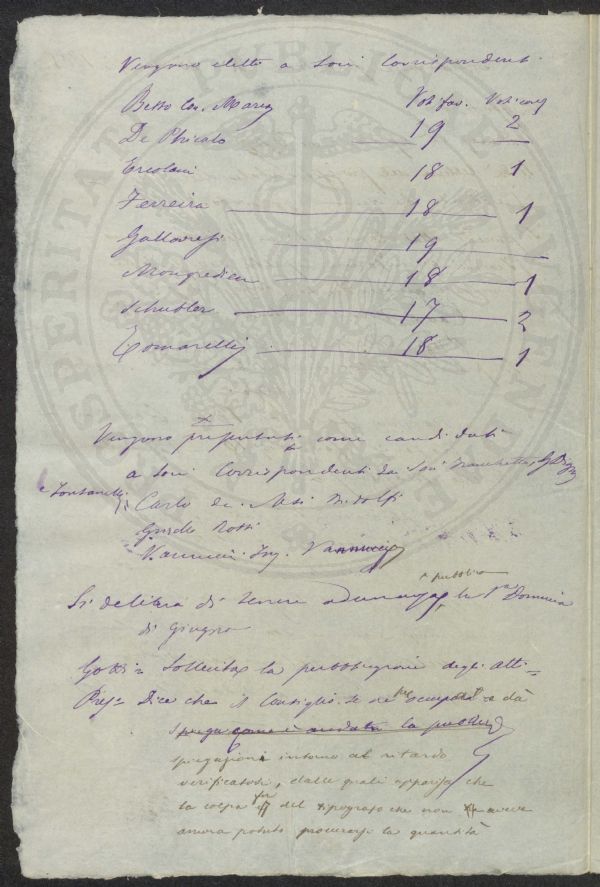 Vengono eletti a Soci Corrispondenti
Voti fav. Voti con
Betto Co. Maria 19 2
De
Ercolani 18 1
Ferreira 18 1
Gallavresi 19
Mongredien 18 1
Schubler 17 2
Tomarelli 18 1
Vengono presentati come candidati
a Soci Corrispondenti da Soci Franchetti,
e Fontanelli Carlo de Nesi Ridolfi
Guido Rossi
Vannucci Ing. Vannuccio
pubblica
Si delibera di tenere adunanza la 1a Domenica
di Giugno
Gotti = Sollecita la pubblicazione degli atti =
Pres= Dice che il Consiglio se ne occupa e dà
spiega come è andata la pubblic
spiegazioni intorno al ritardo
verificatosi, dalle quali apparisce che
la colpa fu del tipografo che non aveva
ancora potuto procurarsi la quantità
PUBLICAE